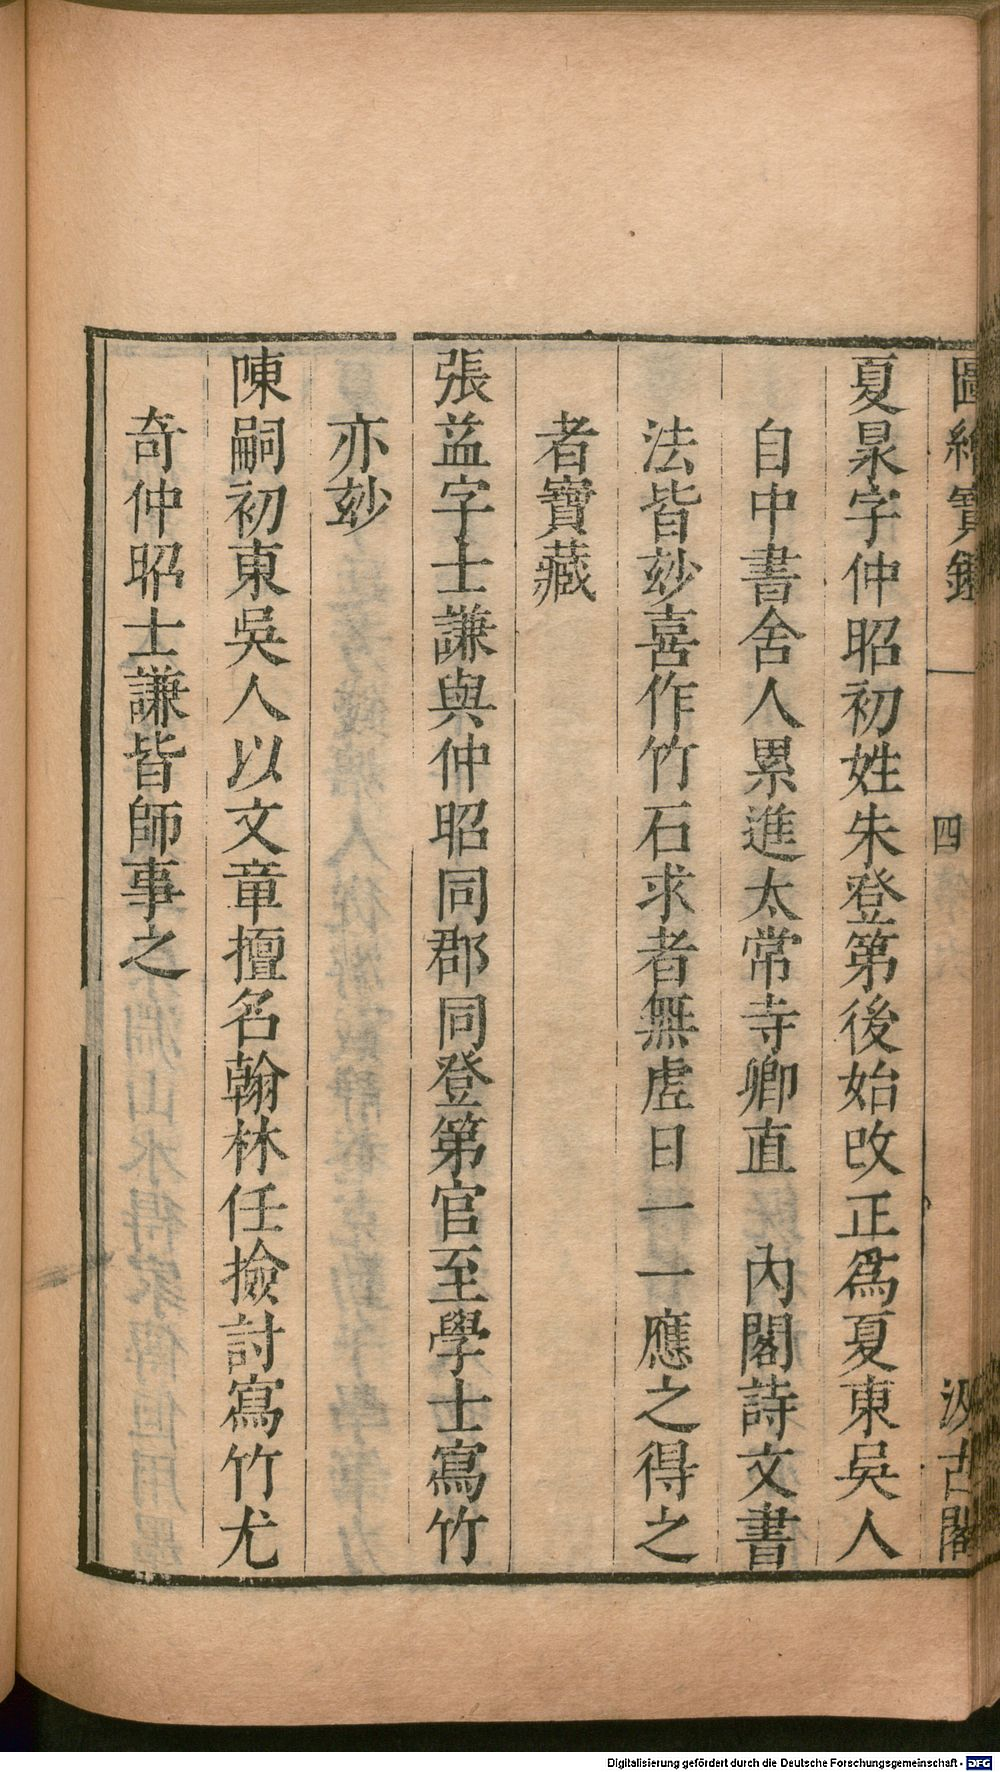 圖繪寶鑑 四 汲古閣
夏昶字仲昭初姓朱登第後始改正爲夏東吳人
自中書舍人累進太常寺卿直 內閣詩文書
法皆玅喜作竹石求者無虛日一一應之得之
者寶藏
張益字士謙與仲昭同郡同登第官至學士寫竹
亦玅
陳嗣初東吳人以文章擅名翰林任撿討寫竹尤
奇仲昭士謙皆師事之
Digitalisierung gefördert durch die Deutsche Forschungsgemeinschaft - DFG